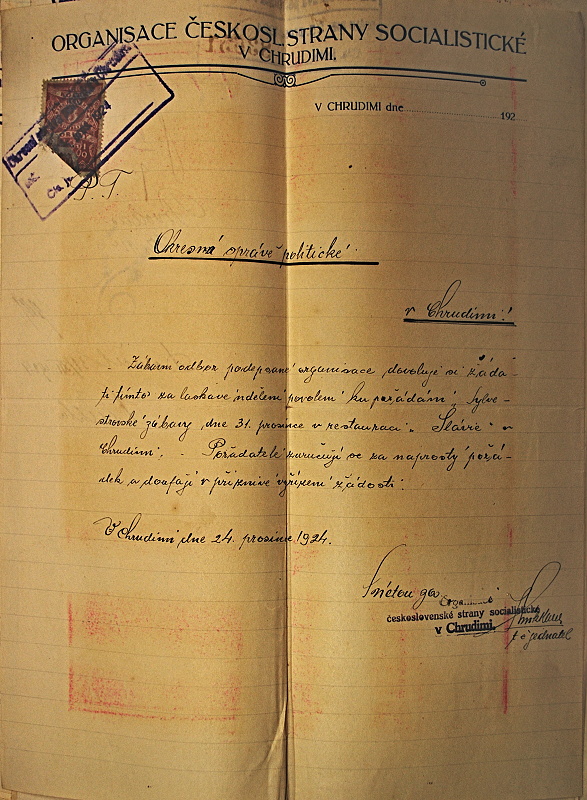 ORGANISACE ČESKOSL. STRANY SOCIALISTICKÉ
V CHRUDIMI.
V CHRUDIMI dne 192
P. T.
Okresní správě politické
v Chrudimi!
Zábavní odbor podepsané organisace dovoluje si žáda-
ti tímto za laskavé udělení povolení ku pořádání „Sylve-
strovské zábavy" dne 31. prosince v restauraci „Slávie" v
Chrudimi. - Pořadatelé zaručují se za naprostý pořá-
dek a doufají v příznivé vyřízení žádosti.
V Chrudimi dne 24. prosince 1924.
S úctou
Organisace
československé strany socialistické
v Chrudimi.
t č jednatel